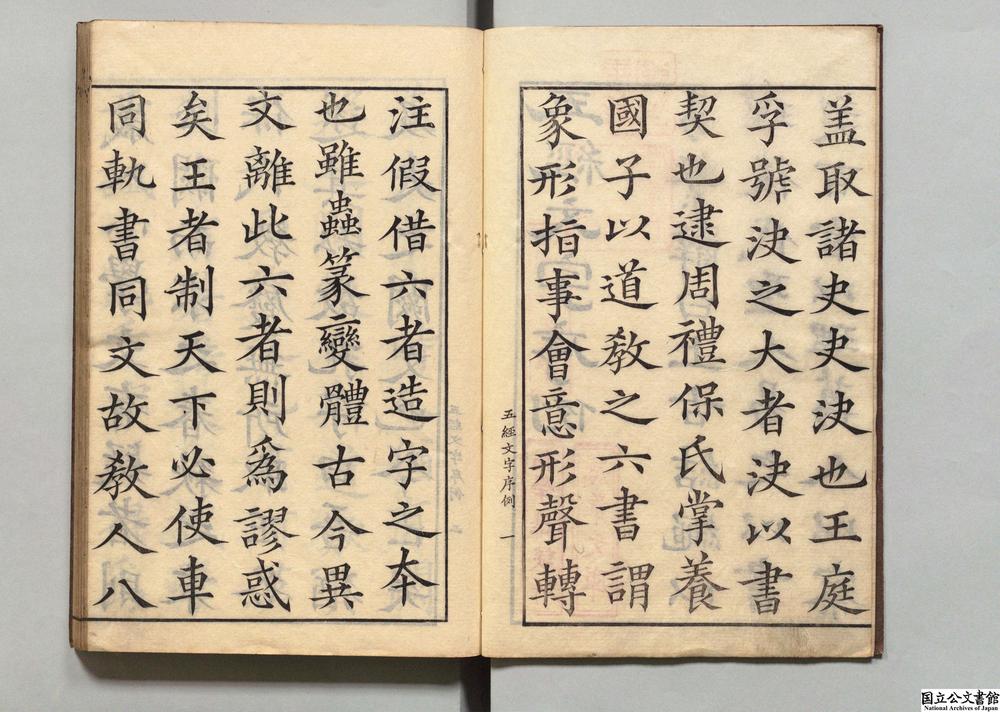 盖取諸夬夬決也王庭
孚號決之大者決以書
契也逮周禮保氏掌養
國子以道敎之六書謂
象形指事會意形聲轉
五經文字序例 一
注假借六者造字之夲
也雖蟲篆變體古今異
文離此六者則爲謬惑
矣王者制天下必使車
同軌書同文故敎人八
国立公文書館
National Archives of Japan